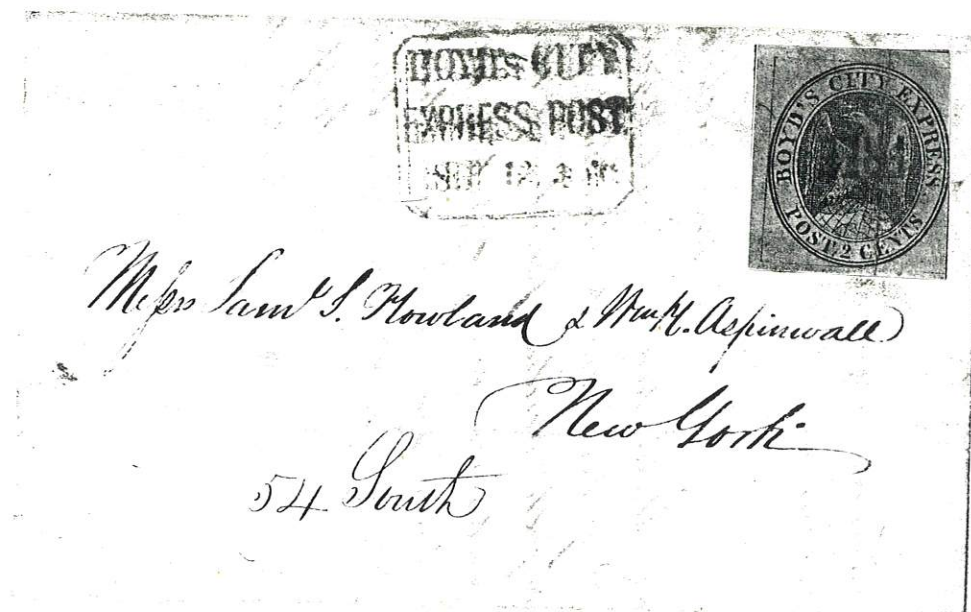 BOYD'S CITY
EXPRESS POST
BOYD'S CITY EXPRESS
POST 2 CENTS
Messrs Saml S. Howland & Wm H. Aspinwall
New York
54 South